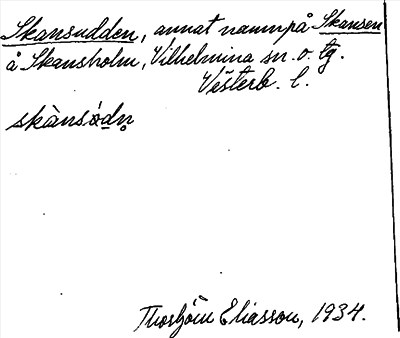 Skansudden, annat namn på Skansen
å Skansholm, Vilhelmina sn. o. tg.
Västerb. l.
skànsø̀dn̥
Thorbjörn Eliasson, 1934.